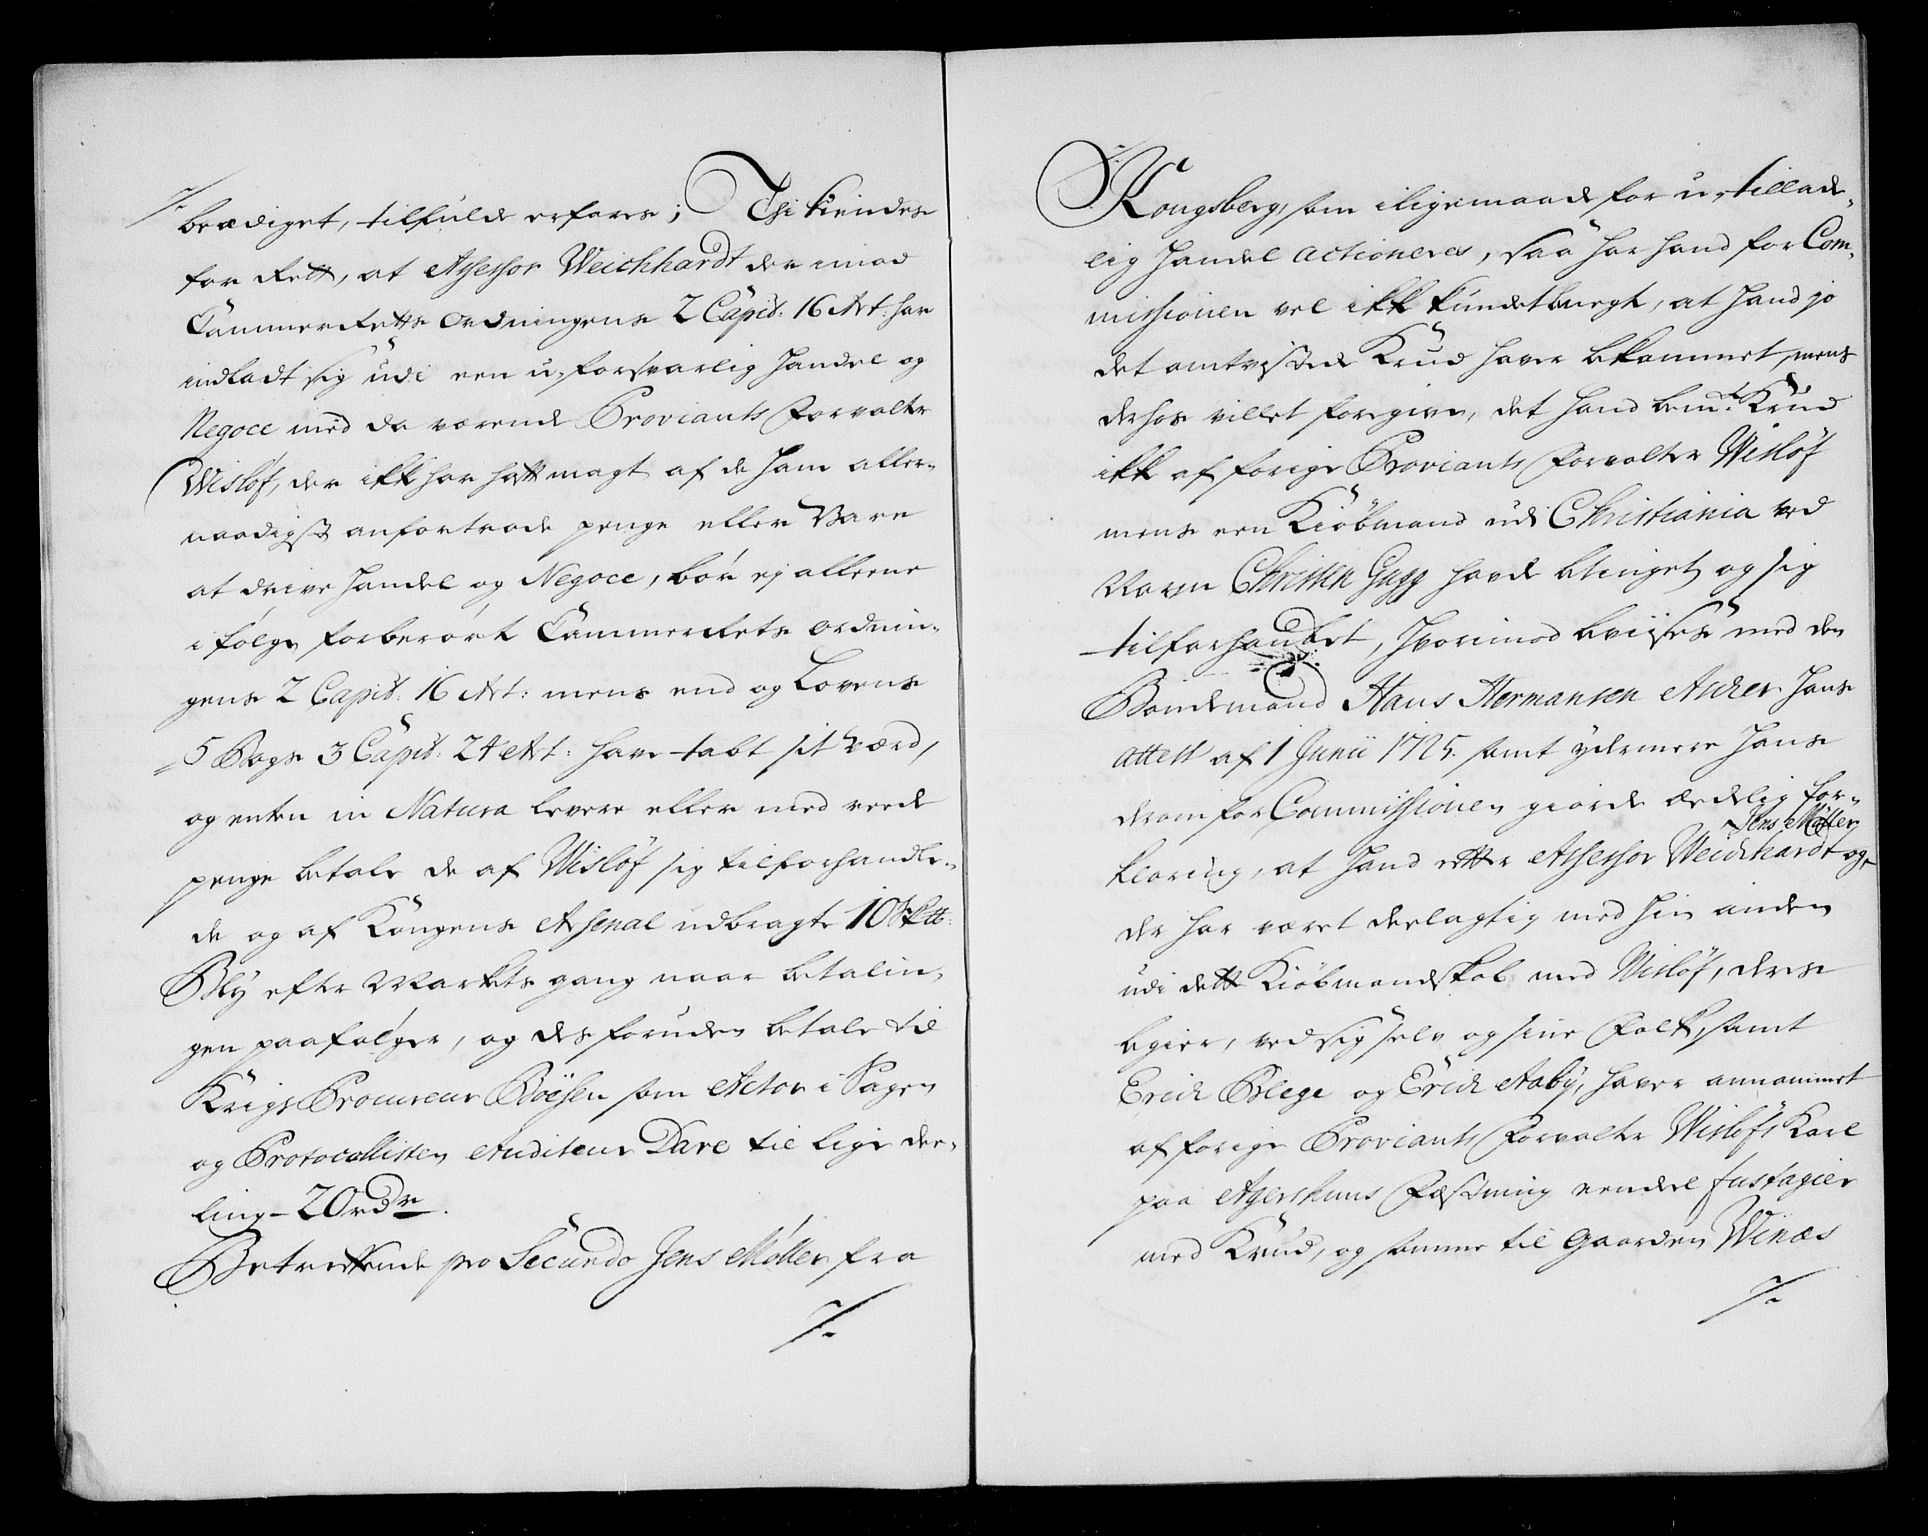 beædiget, tilfulde erfares; Thi kiendes
for Rett, at Assessor Weichhardt der imod
Cammer Retts Ordningens 2 Capit: 16 Art: har
indladt sig udi een u-forsvarlig Handel og
Negoce med da værende Proviants Forvalter
Wisløf, der ikke har hatt magt af de ham aller-
naadigst anfortroede penge eller Vare
at drive Handel og Negoce, bør ej alleene
i følge forberørt Cammer Rets Ordnin-
gens 2 Capit: 16 Art: mens end og Lovens
5 Bogs 3 Capit: 24 Art: have tabt sit værd,
og enten in Natura levere eller med reede
penge betale de af Wisløf sig tilforhandle-
de og af Kongens Arsenal udbragte 10 Sk℔:
Bly efter Markets gang naar betalin-
gen paafølger, og desforuden betale til
Krigs Procureur Boesen som Actor i Sagen
og Protocollisten Auditeur Dare til lige dee-
ling - 20 rdr.
Betreffende pro Secundo Jens Møller fra
Kongsberg, som i ligemaade for u-tillade-
lig Handel actioneres, saa har hand for Com-
missionen vel ikke kundet benegte, at hand jo
det omtvistede Krud haver bekommet, mens
derhos villet foregive, det hand bemte Krud
ikke af forige Proviants Forvalter Wisløf
mens een Kiøbmand udi Christiania ved
Navn Christen Gugg havde betinget og sig
tilforhandlet, hvorimod beviises med den
Bondemand Hans Hermansen Ancher hans
attest af 1 Junii 1725. samt ydermere hans
derom for Commissionen giorde ædelig for-
Jens Møller
klaring, at hand efter Assessor Weichardt og
der har været deelagtig med hin anden
udi dette Kiøbmandskab med Wisløf, deres
begier, ved sig selv og sine Folk, samt
Erich Blege og Erich Aaby, haver annammet
af forige Proviants Forvalter Wisløfs Karl
paa Agershuus Fæstning eendeel fustagier
med Krud, og samme til Gaarden Winæs